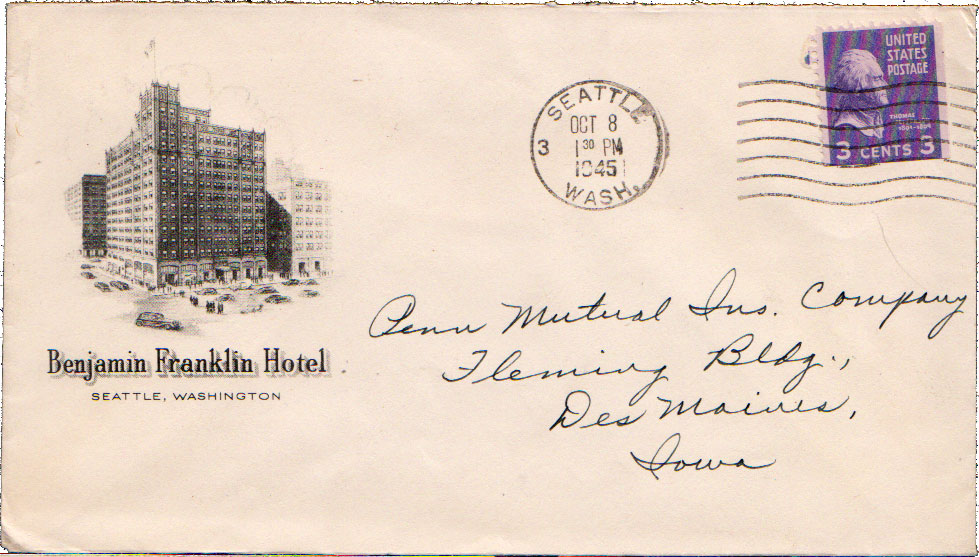 Benjamin Franklin Hotel
SEATTLE, WASHINGTON
SEATTLE
OCT 8
1 30 PM
3
1945
WASH.
UNITED
STATES
POSTAGE
THOMAS
3 CENTS 3
Penn Mutual Ins. Company
Fleming Bldg.,
Des Moines,
Iowa